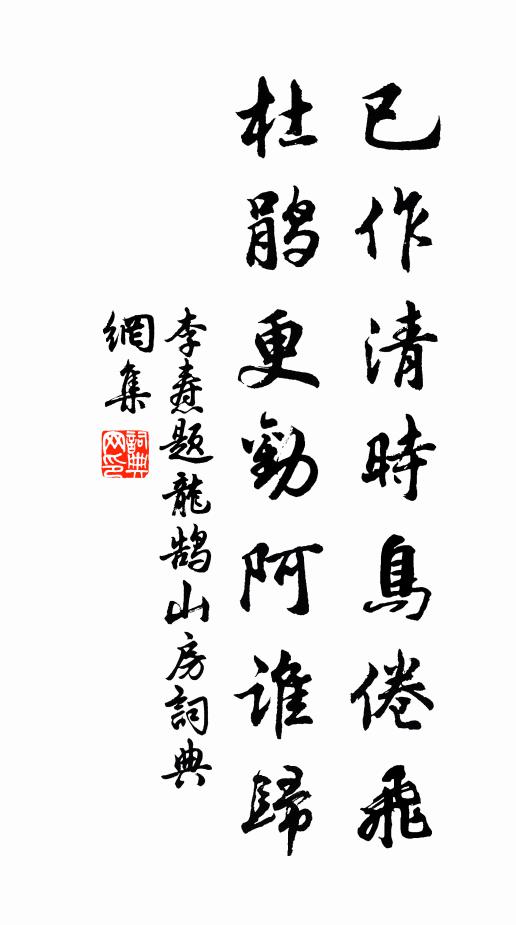 已作清時鳥倦飛
杜鹃更勸阿谁歸
李燾題龍鹄山房詞典
網集
詞典網印